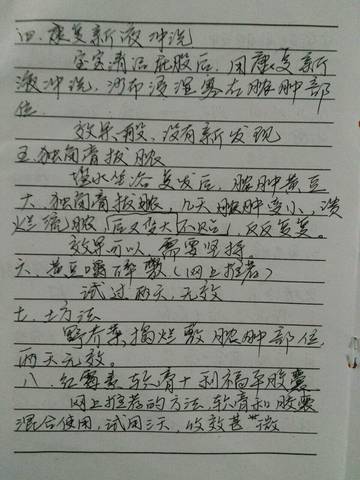 四.康复新液冲洗
宝宝清洁屁股后,用康复新
液冲洗,沙布浸湿塞在脓肿部
位.
效果一般,没有新发现
五.独角膏拔脓
堪水坐浴复发后,脓肿黄豆
大.独角膏拔脓,几天脓肿变小,溃
烂流脓,后又变大不只后,反反复复。
效果可以,需要坚持。
六、黄豆嚼碎敷(网上推荐)
试过两天,无效
七.土方法
野芥菜捣烂敷脓肿部位,
两天无效。
八.红霉素软膏+利福平胶囊
网上推荐的方法,软膏和胶囊
混合使用,试用三天,收效甚微